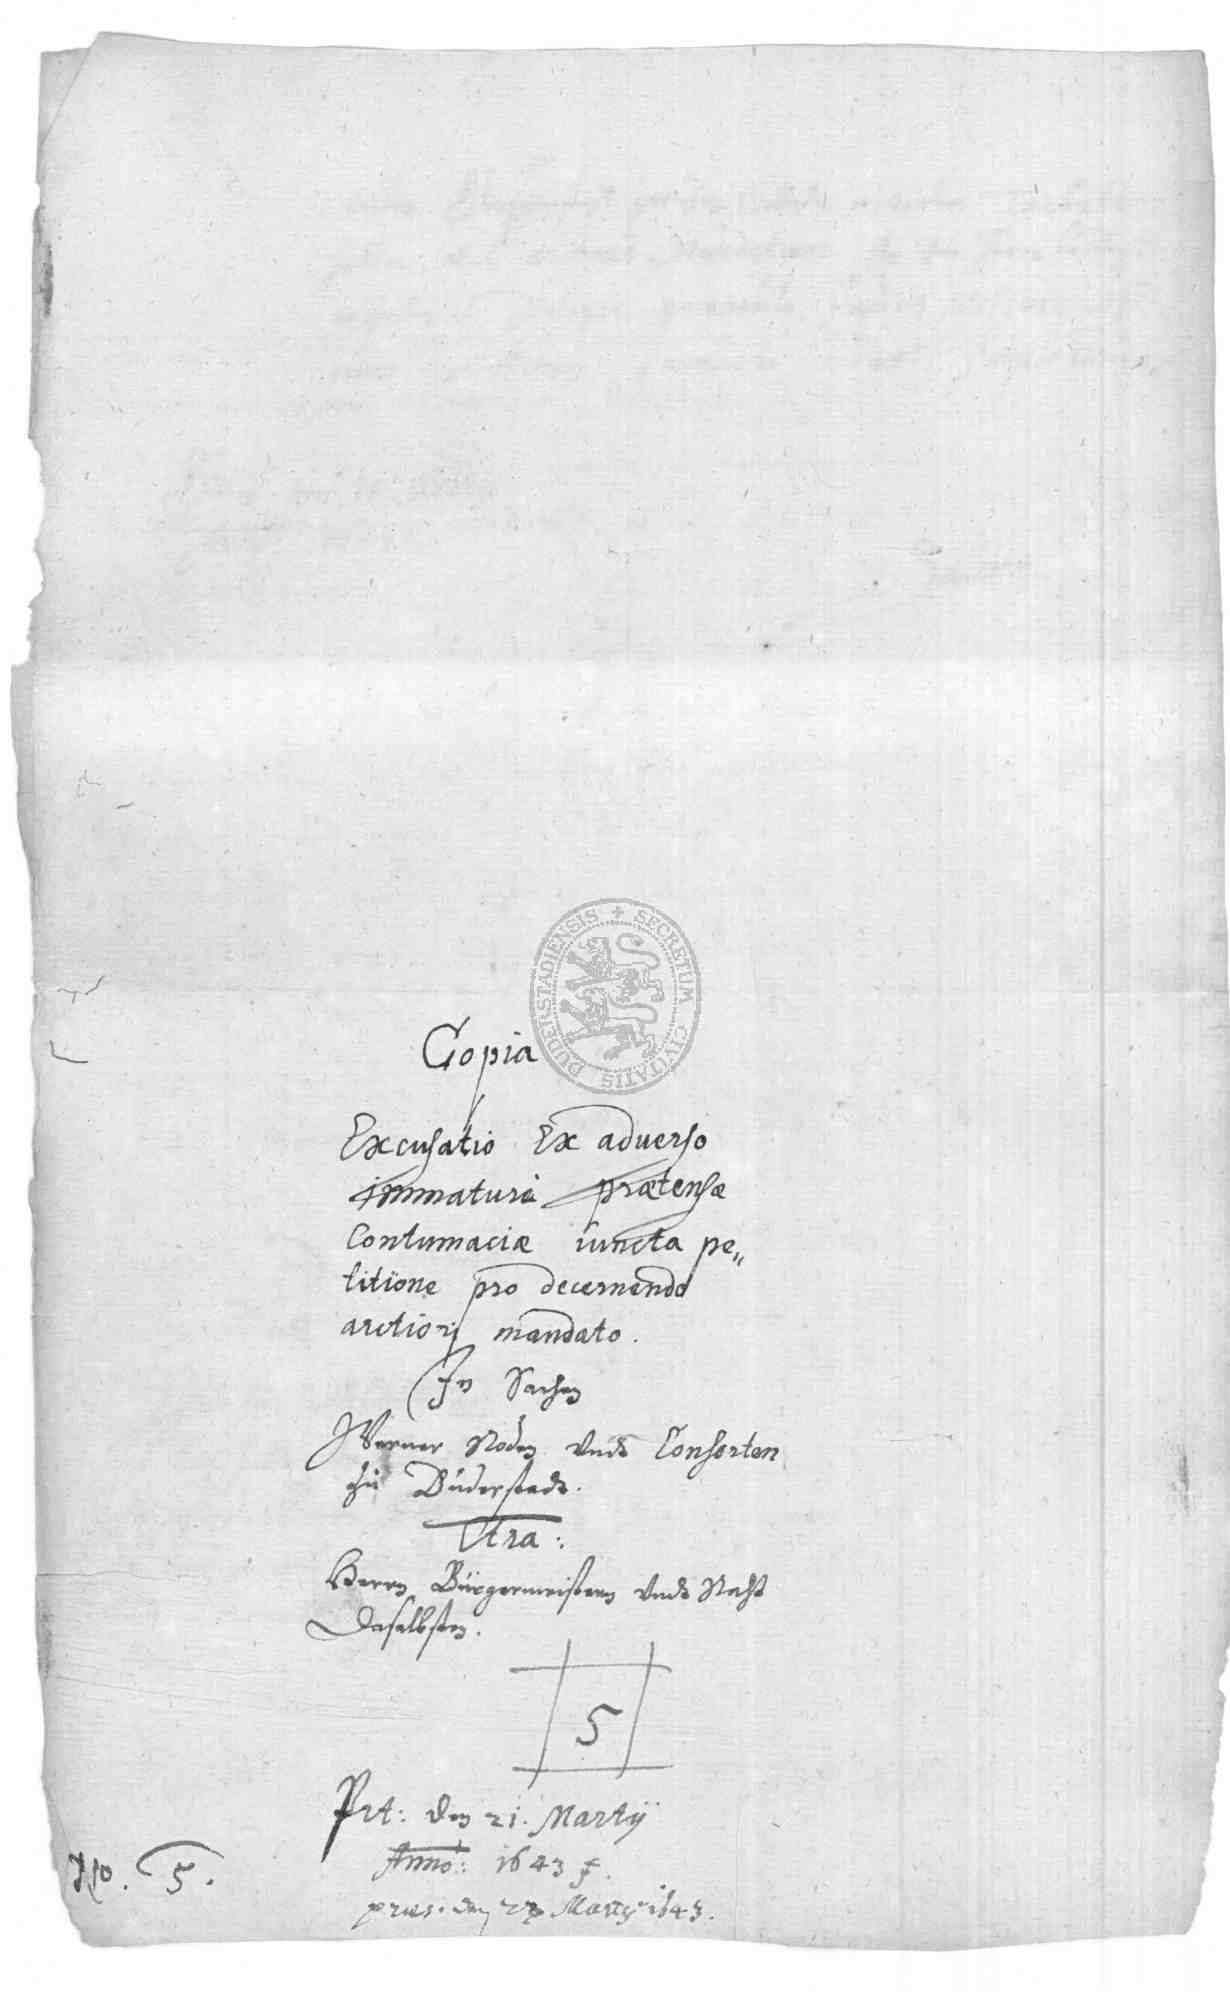 SECRETUM CIVITATIS DUDERSTADIENSIS
Copia
Excusatio Ex adverso
immaturè prætensæ
Contumaciæ iuncta pe„
titione pro decernendo
arctiori mandato.
In Sachen
Werner Noden Vndt Consorten
zu Duderstadt.
Ctra:
Herrn Bürgermeistern Vndt Raht
Daselbsten.
5
Prt: den 21. Martij
Anno: 1643
No. 5.
præs. den Martij 1643.